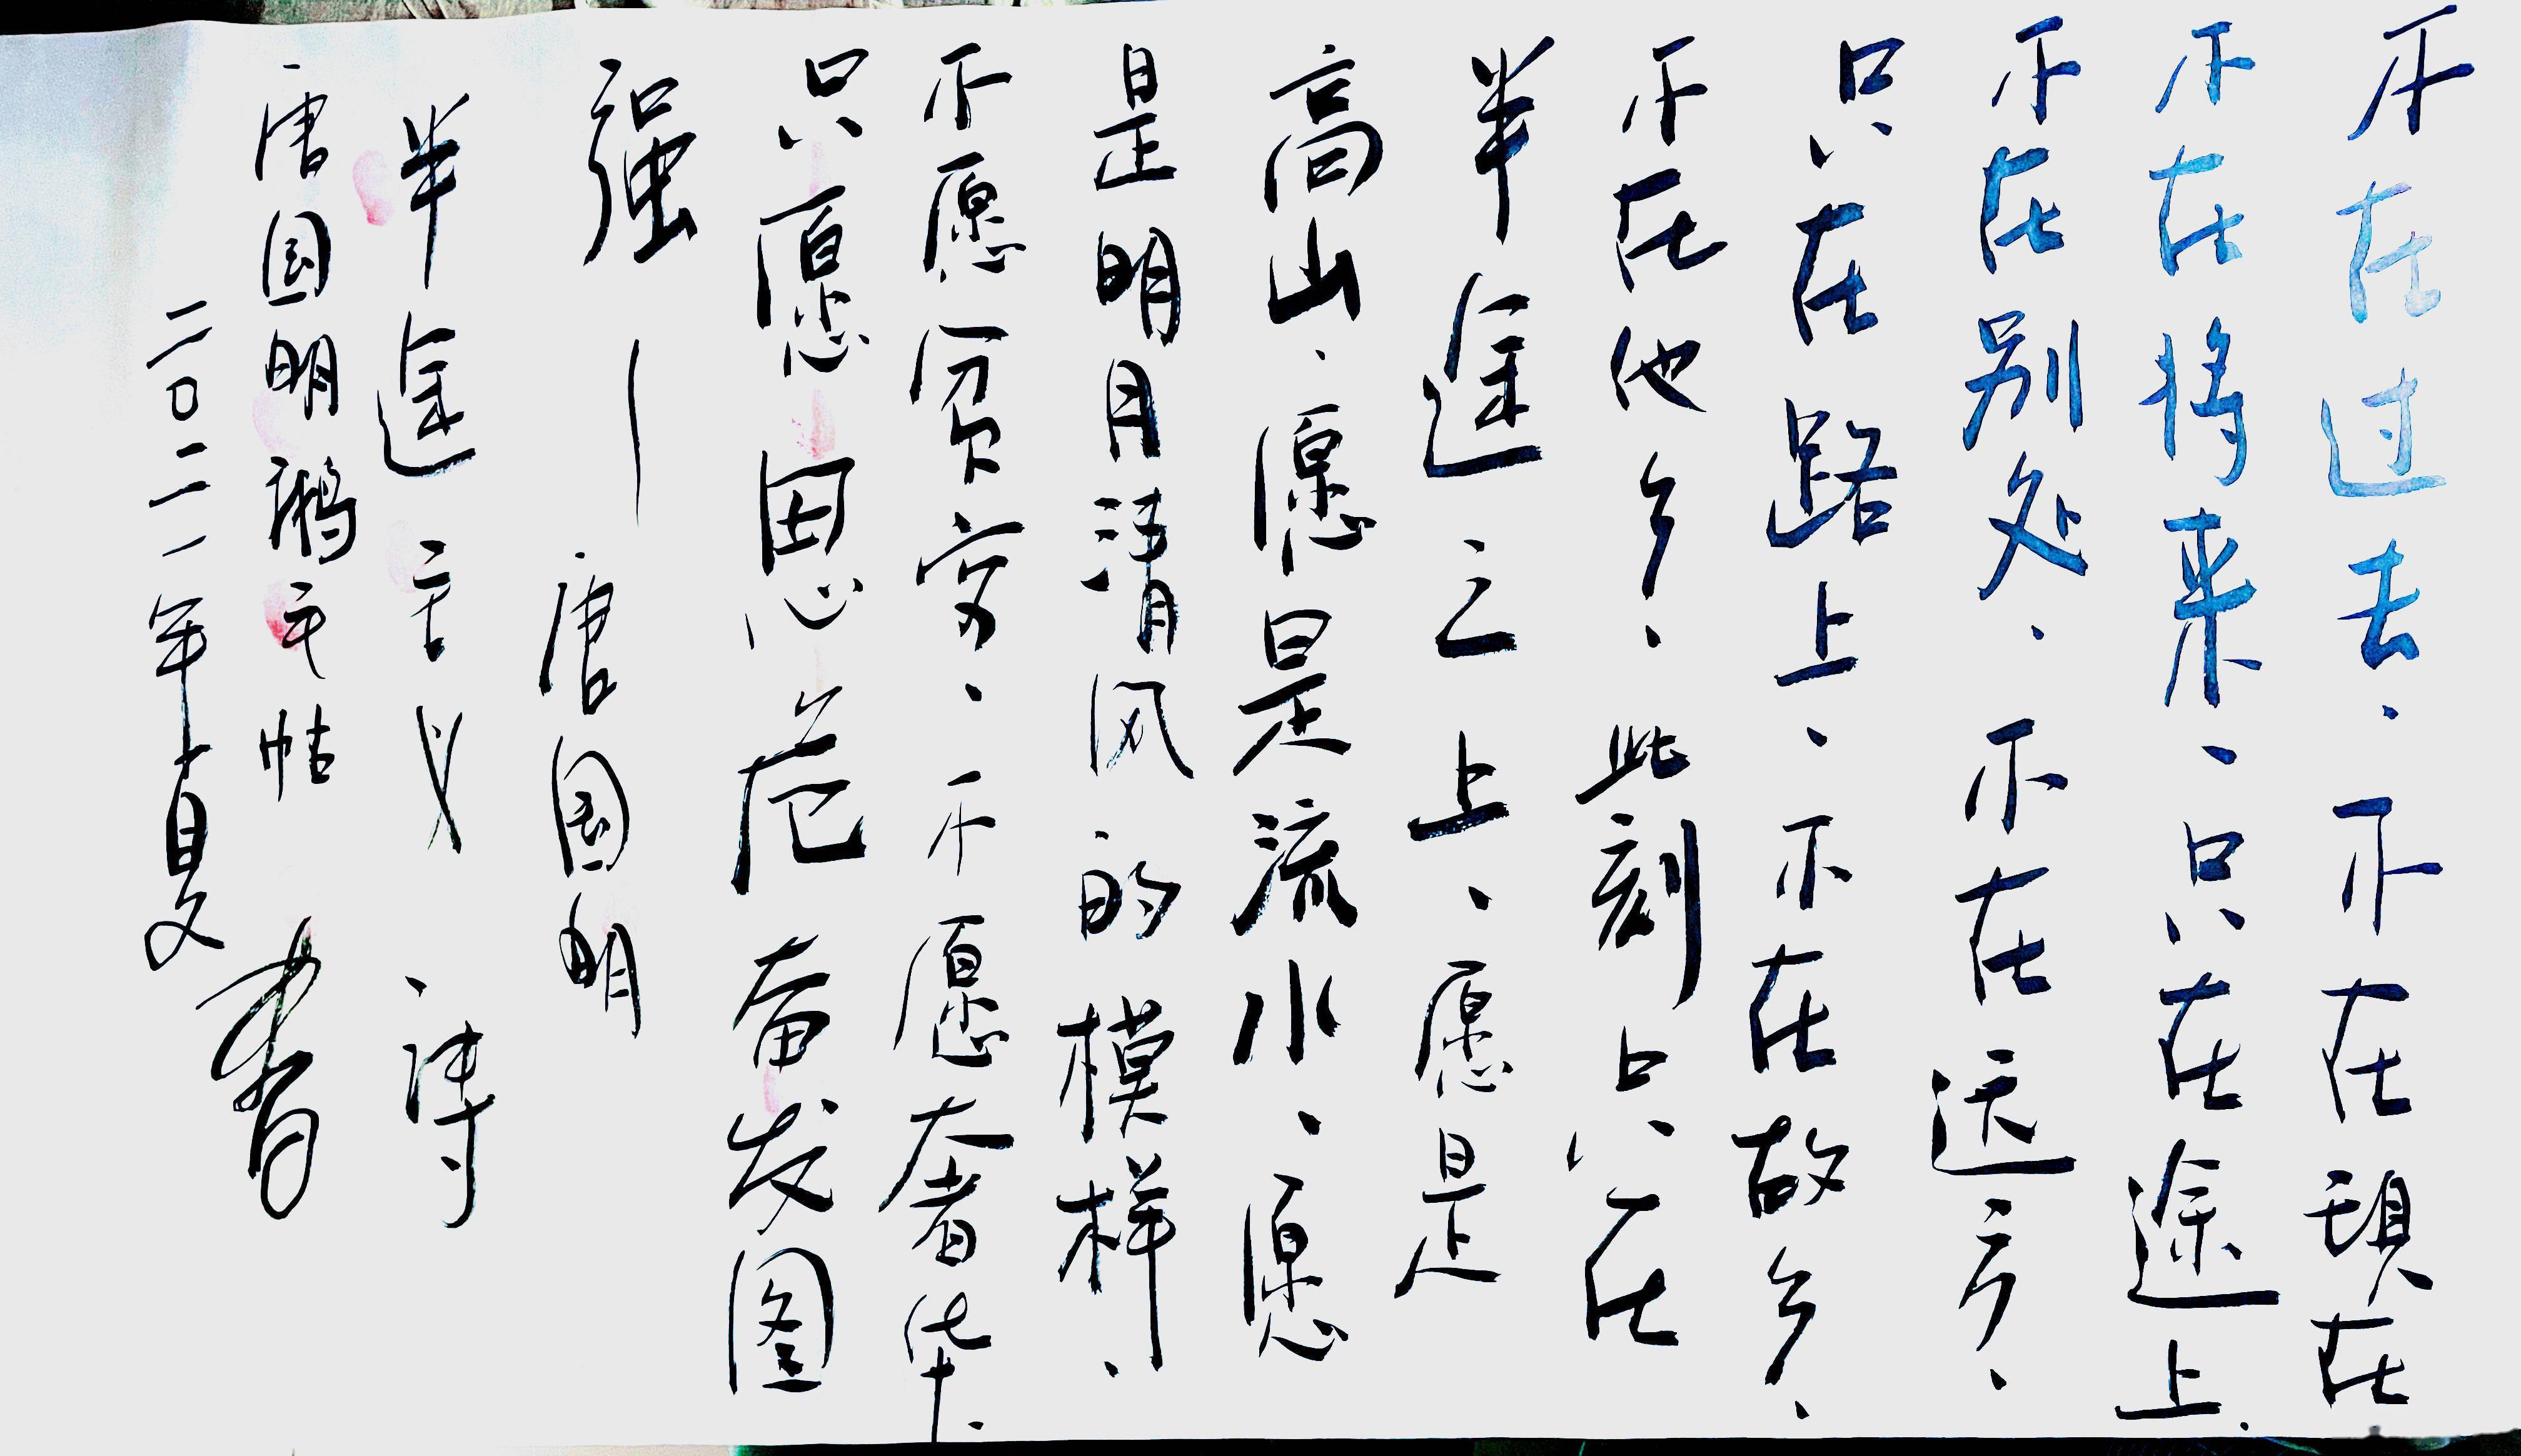 不在过去、不在现在
不在将来、只在途上、
不在别处、不在远方、
只在路上、不在故乡、
不在他乡、此刻只在
半途之上、愿是
高山、愿是流水、愿
是明月清风的模样、
不愿贫穷、不愿奢华、
只愿思危奋发图
强 — 唐国明
半途主义 诗
唐国明鹅毛帖
二〇二一年夏 书